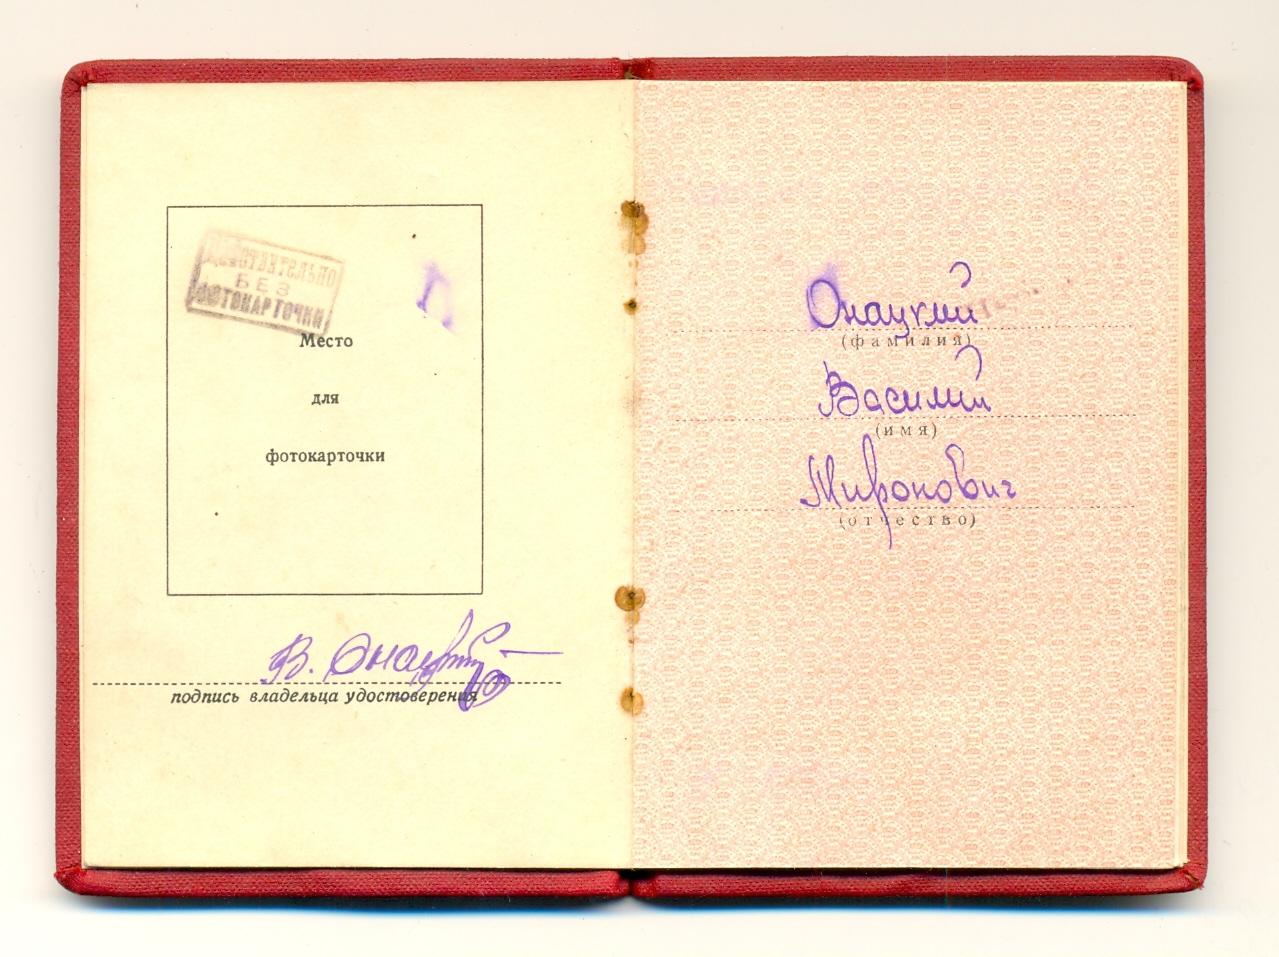 ДЕЙСТВИТЕЛЬНО
БЕЗ
ФОТОКАРТОЧКИ
Место
для
фотокарточки
В. Онацкий
подпись владельца удостоверения
Онацкий
(фамилия)
Василий
(имя)
Миронович
(отчество)